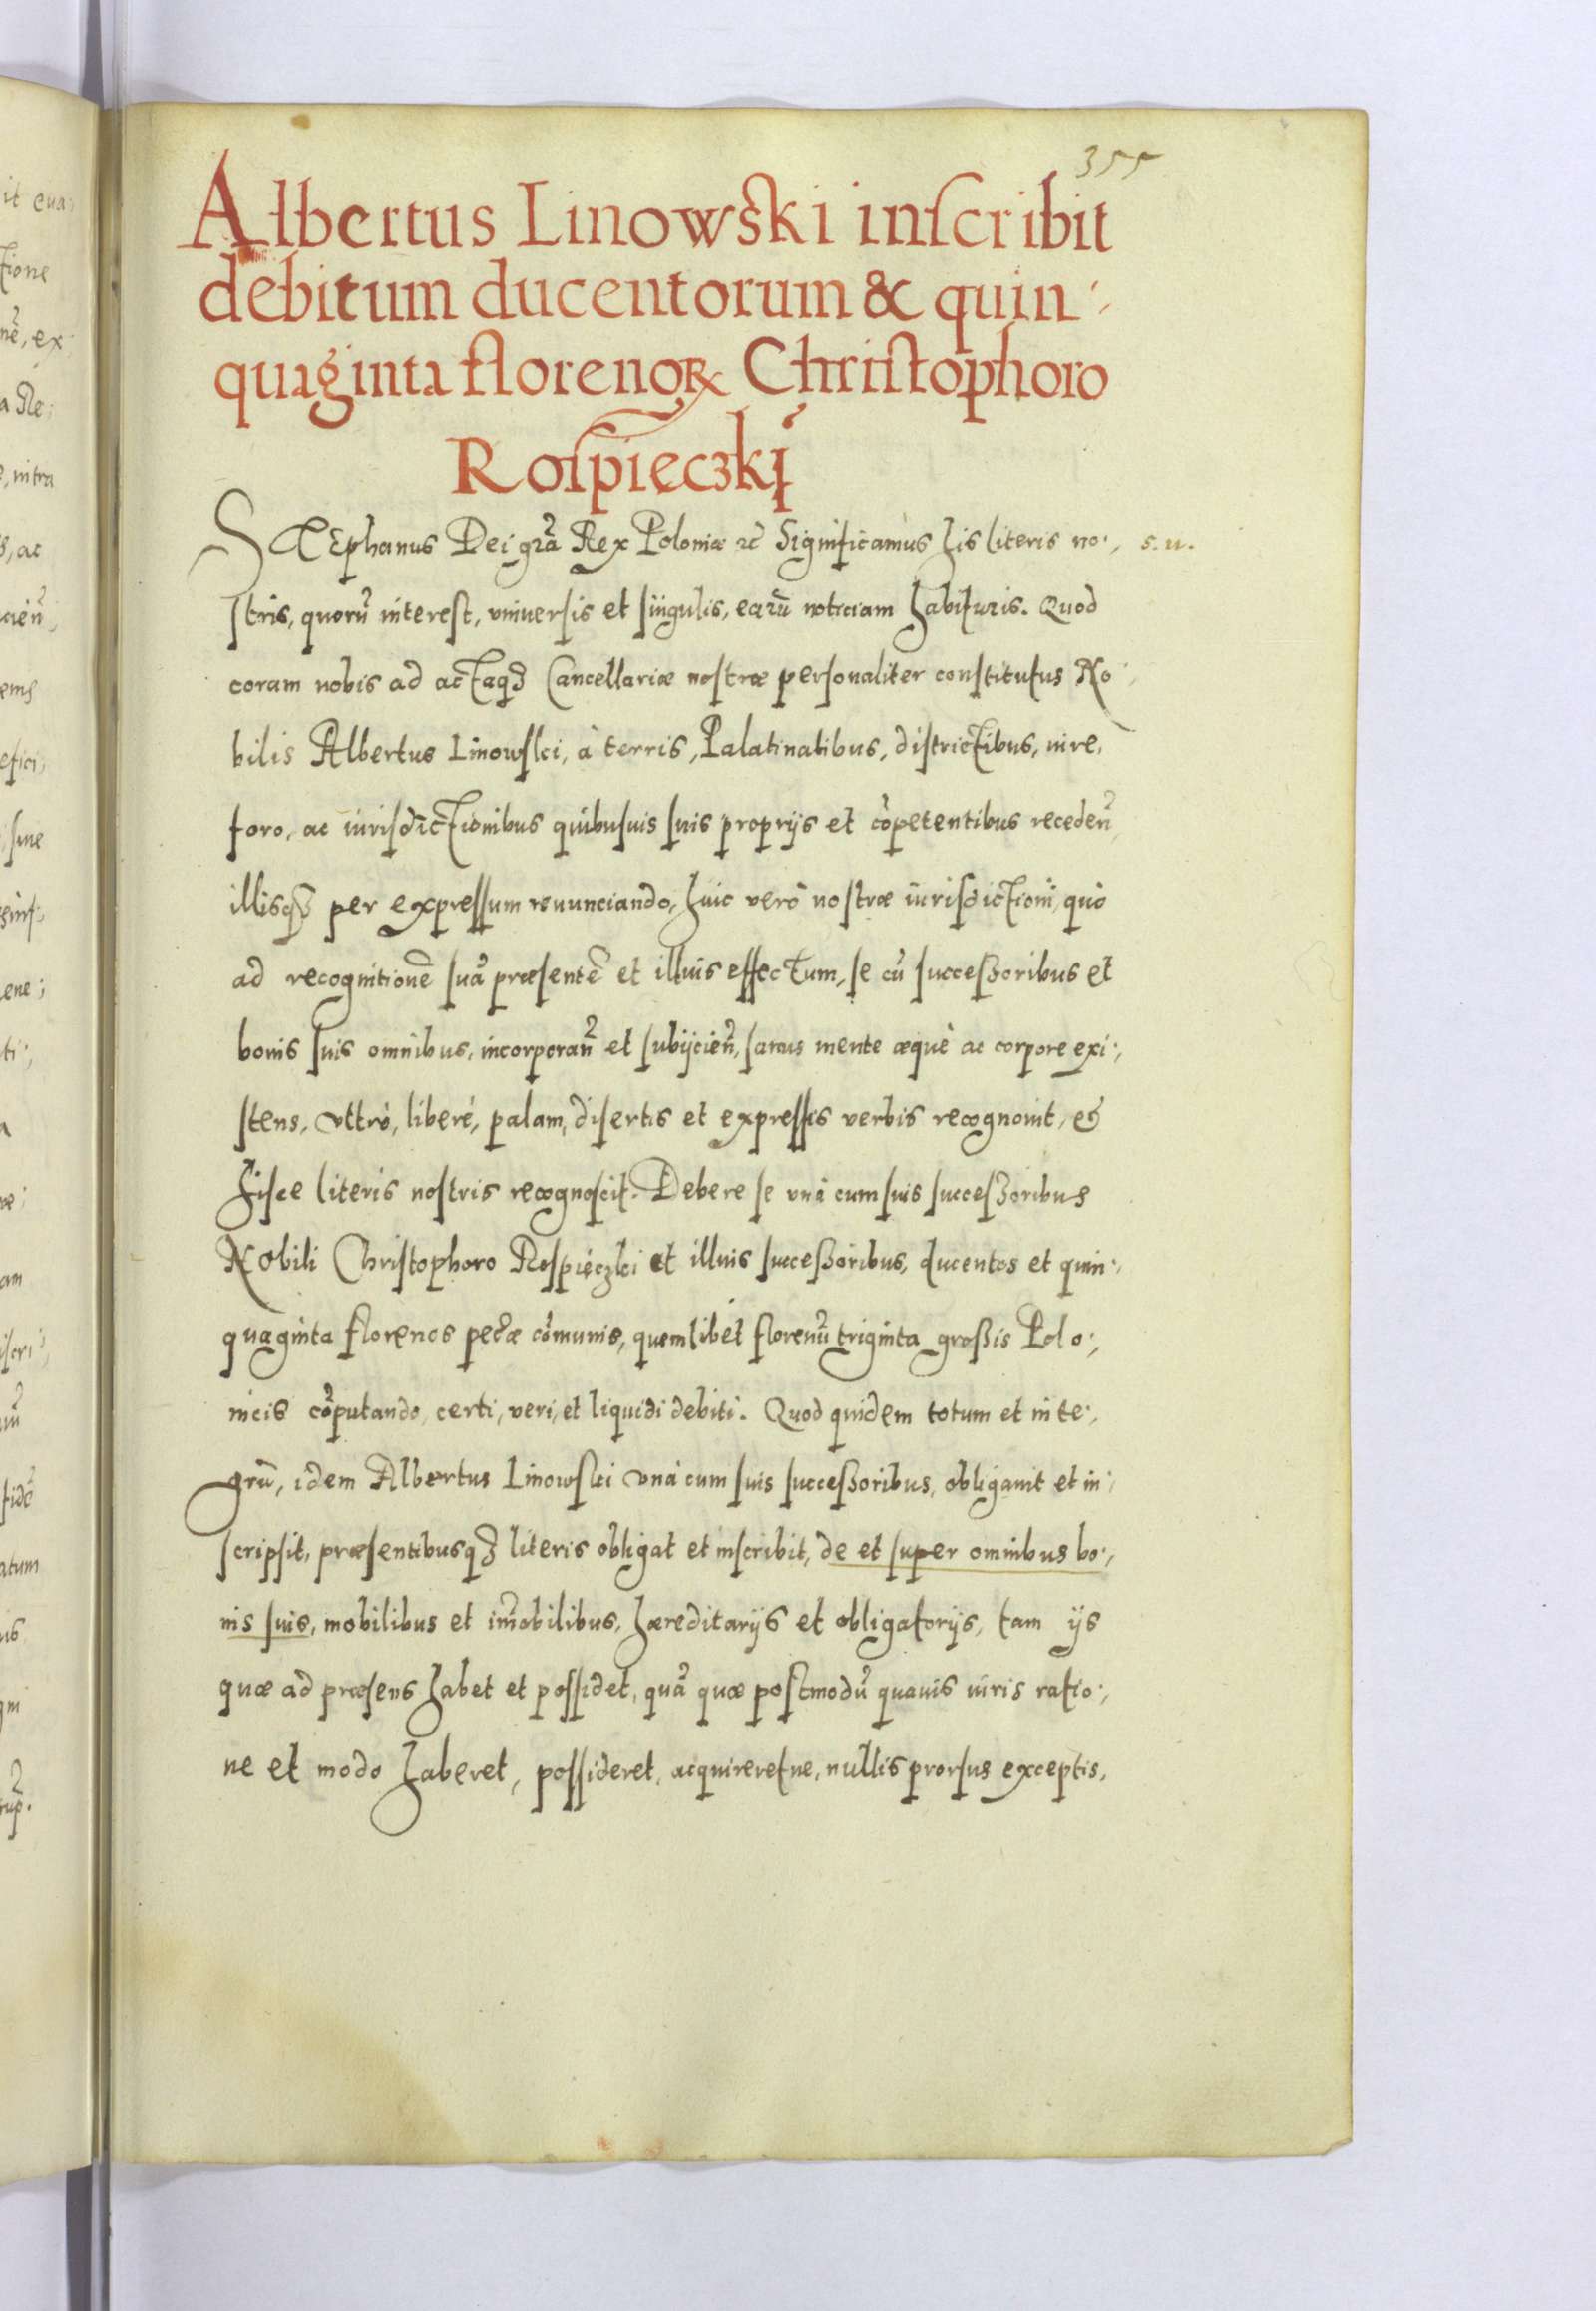 355
Albertus Linowski inscribit
debitum ducentorum & quin
quaginta florenoꝝ Christophoro
Rospieczki
STEphanus Dei gr̃a Rex Poloniæ ꝛc̃ Significamus his literis no-
s. u.
stris, quorũ interest, vniuersis et singulis, earũ noticiam habituris. Quod
coram nobis ad actaqꝫ Cancellariæ nostræ personaliter constitutus No-
bilis Albertus Linowski, à terris, Palatinatibus, districtibus, iure,
foro, ac iurisdictionibus quibusuis suis proprijs et cõpetentibus recedeñ,
illisqꝫ per expressum renunciando, huic verò nostræ iurisdictioni, quò
ad recognitionẽ suã præsentẽ et illius effectum, se cũ successoribus et
bonis suis omnibus, incorporañ et subijcieñ, sanus mente æquè ac corpore exi-
stens, vltrò, liberè, palam, disertis et expressis verbis recognouit, et
hisce literis nostris recognoscit. Debere se vnà cum suis successoribus
Nobili Christophoro Rospieczki et illius successoribus, ducentos et quin-
quaginta florenos pecæ cõmunis, quemlibet florenũ triginta grossis Polo-
nicis cõputando, certi, veri, et liquidi debiti. Quod quidem totum et inte-
grũ, idem Albertus Linowski vnà cum suis successoribus, obligauit et in-
scripsit, præsentibusqꝫ literis obligat et inscribit, de et super omnibus bo-
nis suis, mobilibus et im̃obilibus, hæreditarijs et obligatorijs, tam ijs
quæ ad præsens habet et possidet, quã quæ postmodũ quauis iuris ratio-
ne et modo haberet, possideret, acquireretue, nullis prorsus exceptis,